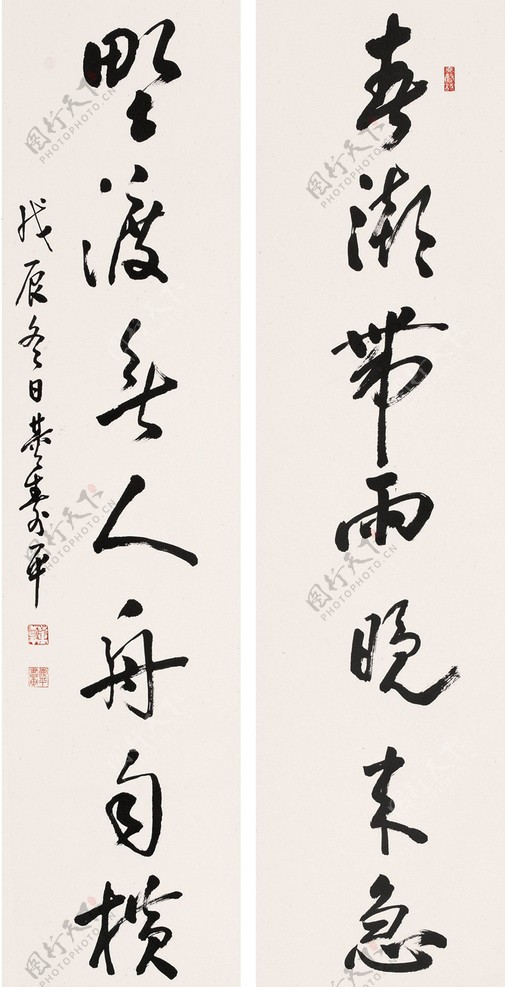 春潮带雨晚来急
野渡无人舟自横
戊辰冬日董寿平
图行天下
PHOTOPHOTO.CN